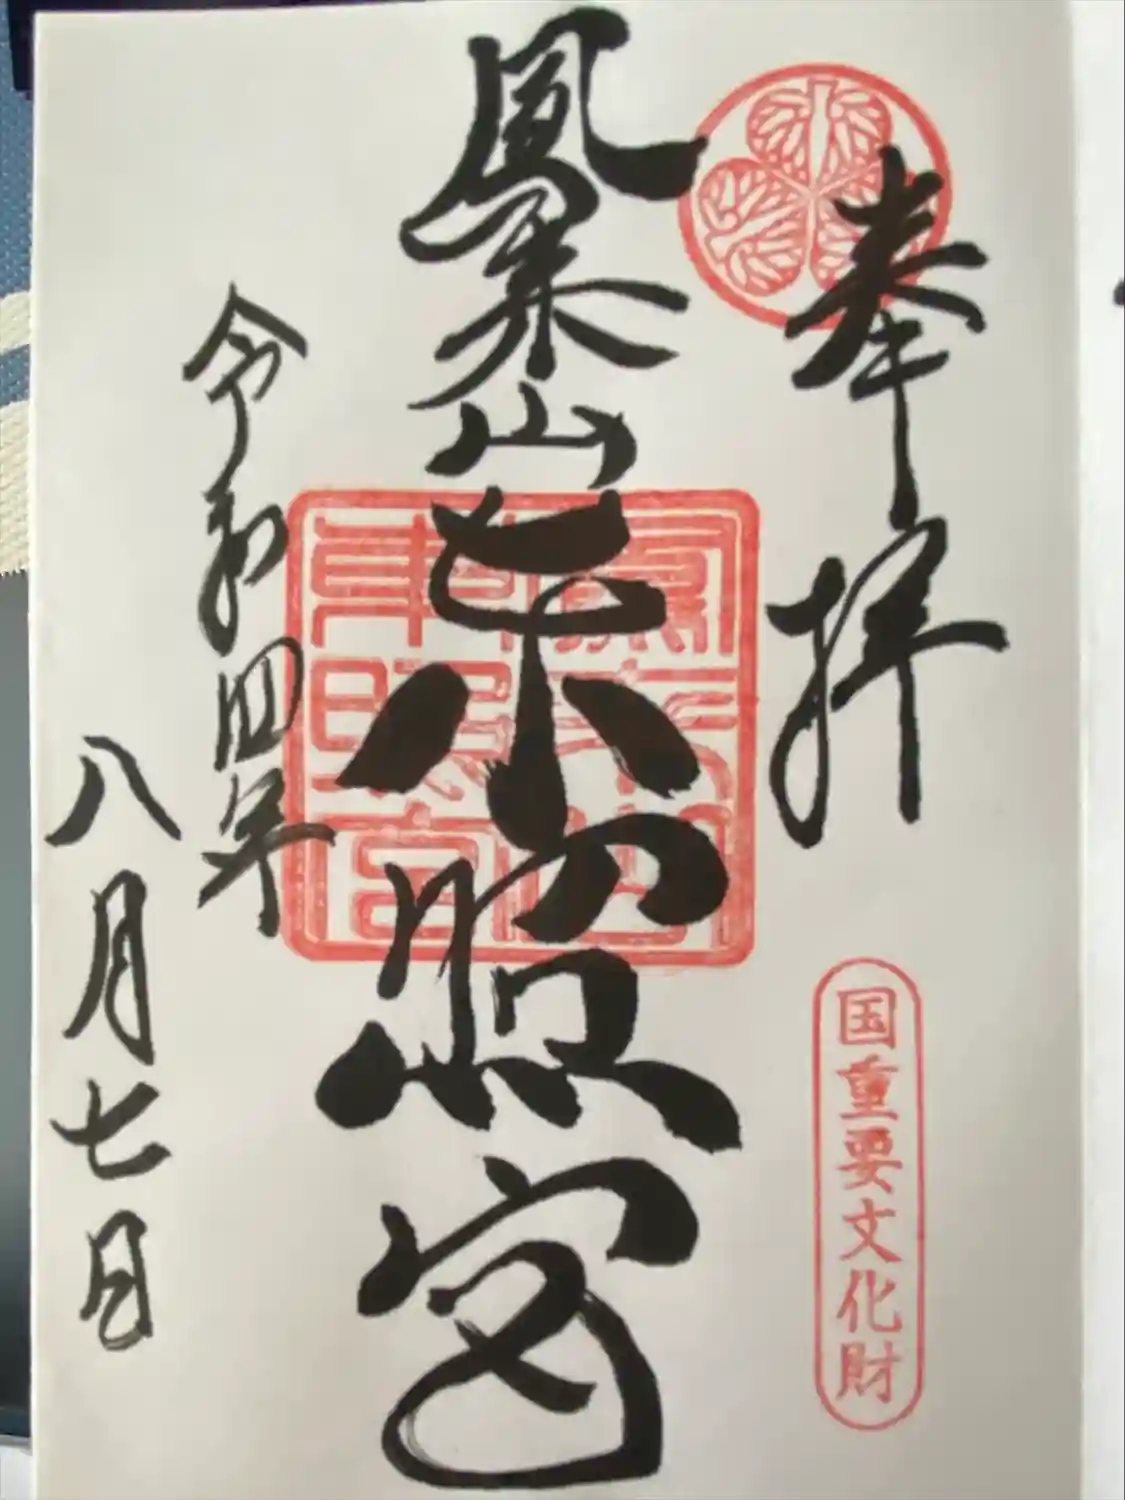 奉拝
国重要文化財
鳳来山東照宮
鳳来山東照宮
令和四年
八月七日